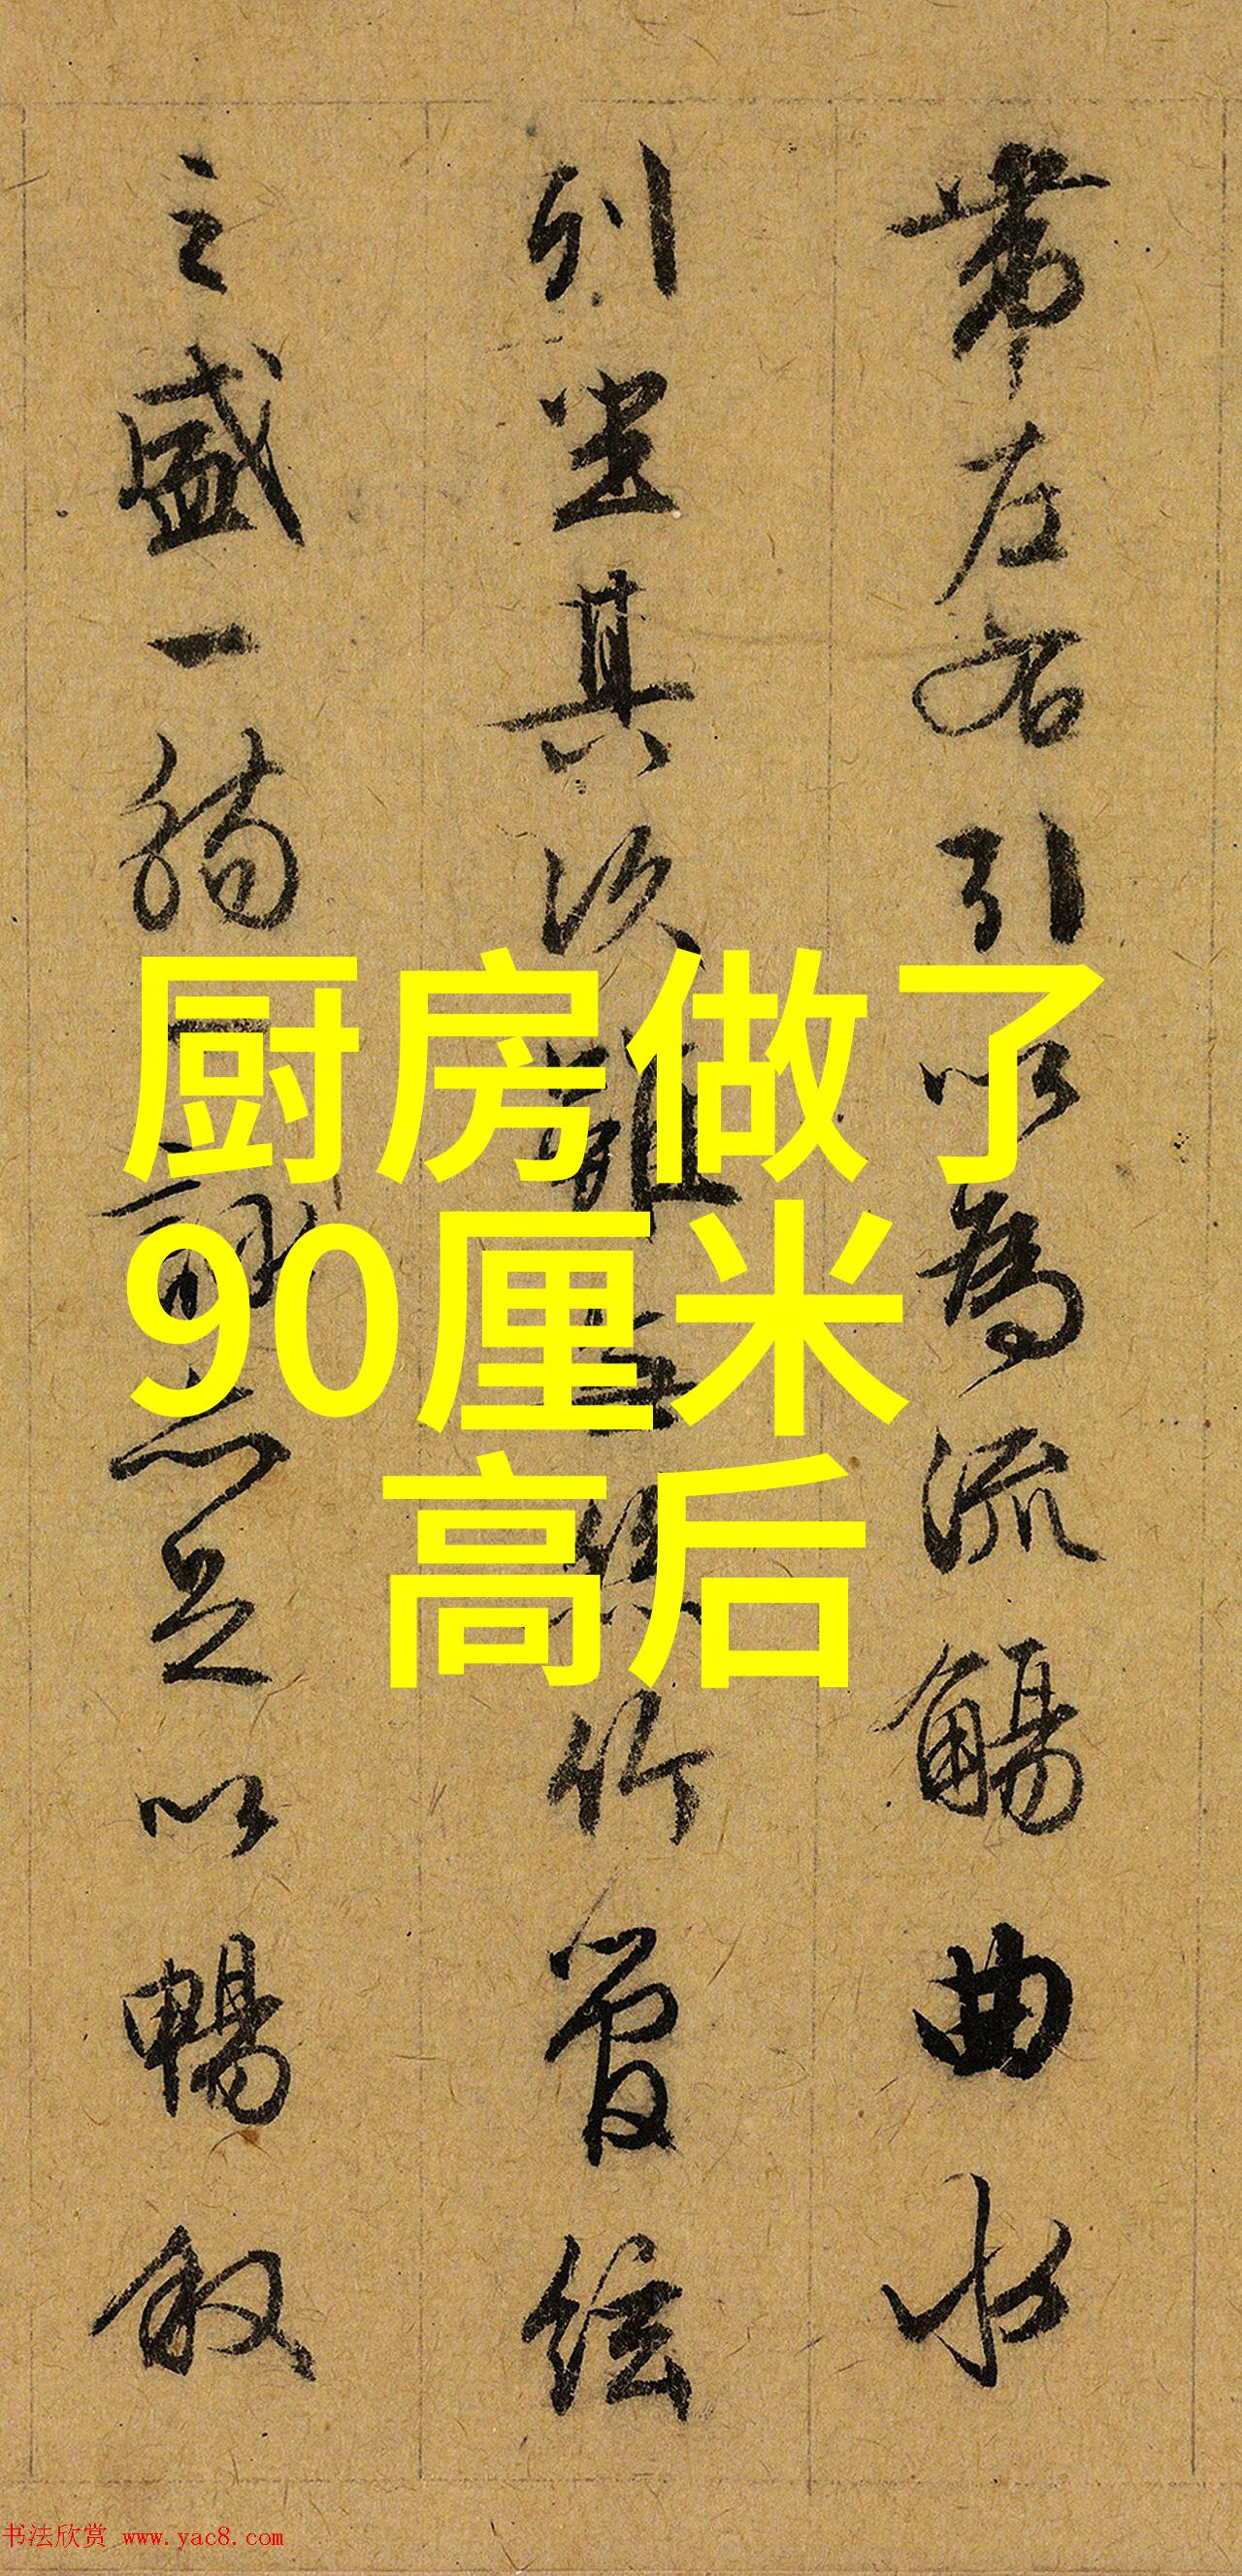 带左右引以為流觴曲水
列坐其次雖無絲竹管絃
之盛一觴一詠亦足以暢敘
厨房做了
90厘米
高后
书法欣赏 www.yac8.com